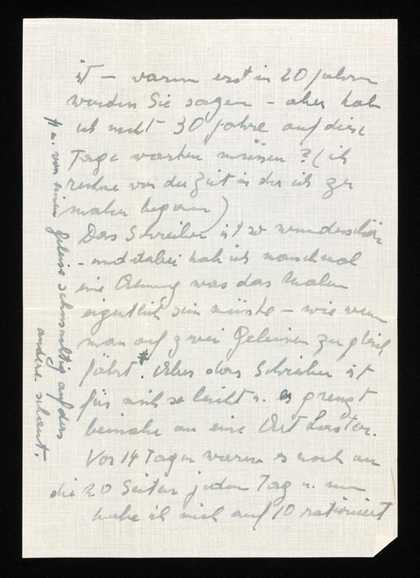 ist – warum erst in 20 Jahren
werden Sie sagen – aber habe
ich nicht 30 Jahre auf diese
Tage warten müssen? (ich
rechne von der Zeit in der ich zu
malen begann)
Das Schreiben ist so wunderschön
– und dabei hab ich manchmal
eine Ahnung was das Malen
eigentlich sein müsste – wie wenn
man auf zwei Geleisen zugleich
fährt.* Aber das Schreiben ist
für mich so leicht u. es grenzt
beinahe an eine Art Laster.
Vor 14 Tagen waren es noch an
die 20 Seiten jeden Tag u. nun
habe ich mich auf 10 rationiert
* u. von einem Geleise sehnsüchtig auf das
andere schaut.